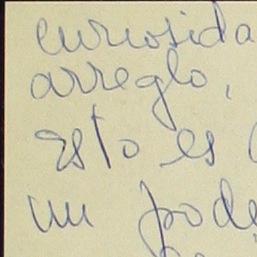 curiosida
arreglo,
esto es
un pode